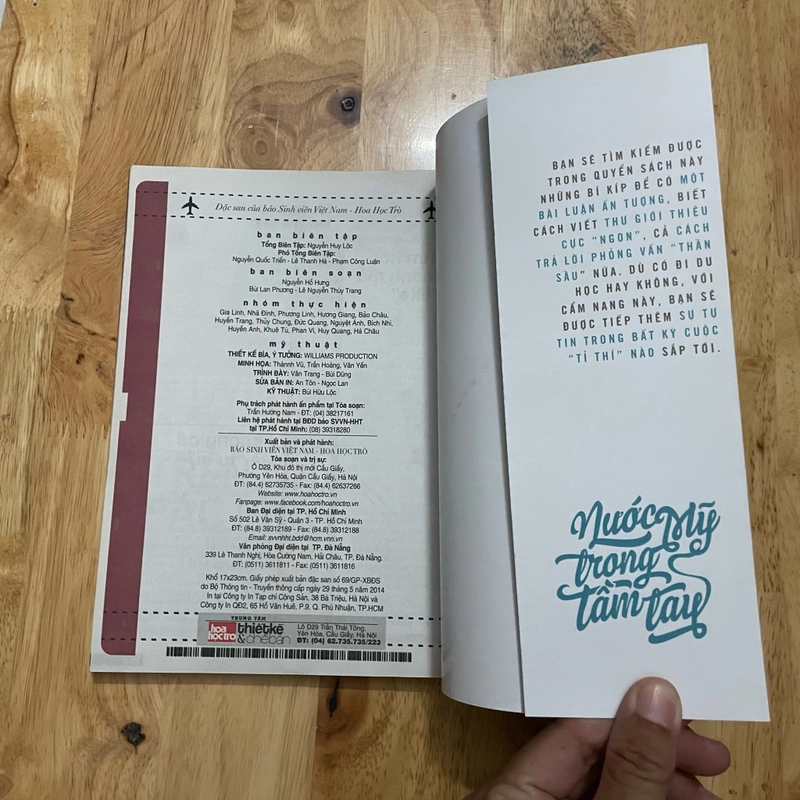 Đặc san của báo Sinh viên Việt Nam - Hoa Học Trò
ban biên tập
Tổng Biên Tập: Nguyễn Huy Lộc
Phó Tổng Biên Tập:
Nguyễn Quốc Triến - Lê Thanh Hà - Phạm Công Luận
ban biên soạn
Nguyễn Hồ Hưng
Bùi Lan Phương - Lê Nguyễn Thùy Trang
nhóm thực hiện
Gia Linh, Nhã Đình, Phương Linh, Hương Giang, Bảo Châu,
Huyền Trang, Thủy Chung, Đức Quang, Nguyệt Anh, Bích Nhi,
Huyền Anh, Khuê Tú, Phan Vi, Huy Quang, Hà Châu
mỹ thuật
THIẾT KẾ BÌA, Ý TƯỞNG: WILLIAMS PRODUCTION
MINH HỌA: Thành Vũ, Trần Hoàng, Vân Yến
TRÌNH BÀY: Vân Trang - Bùi Dũng
SỬA BẢN IN: An Tôn - Ngọc Lan
KỸ THUẬT: Bùi Hữu Lộc
Phụ trách phát hành ấn phẩm tại Tòa soạn:
Trần Hướng Nam - ĐT: (04) 38217161
Liên hệ phát hành tại BĐD báo SVVN-HHT
tại TP.Hồ Chí Minh: (08) 39318280
Xuất bản và phát hành:
BÁO SINH VIÊN VIỆT NAM - HOA HỌC TRÒ
Tòa soạn và trị sự:
Ô D29, Khu đô thị mới Cầu Giấy,
Phường Yên Hòa, Quận Cầu Giấy, Hà Nội
ĐT: (84.4) 62735735 - Fax: (84.4) 62637266
Website: www.hoahoctro.vn
Fanpage: www.facebook.com/hoahoctro.vn
Ban Đại diện tại TP. Hồ Chí Minh
Số 502 Lê Văn Sỹ - Quận 3 - TP. Hồ Chí Minh
ĐT: (84.8) 39312189 - Fax: (84.8) 39312188
Email: svvnhht.bdd@hcm.vnn.vn
Văn phòng Đại diện tại TP. Đà Nẵng
339 Lê Thanh Nghị, Hòa Cường Nam, Hải Châu, TP. Đà Nẵng.
ĐT: (0511) 3611811 - Fax: (0511) 3611816
Khổ 17x23cm. Giấy phép xuất bản đặc san số 69/GP-XBĐS
do Bộ Thông tin - Truyền thông cấp ngày 29 tháng 5 năm 2014
In tại Công ty In Tạp chí Cộng Sản, 38 Bà Triệu, Hà Nội và
Công ty In QĐ2, 65 Hồ Văn Huê, P.9, Q. Phú Nhuận, TP.HCM
TRUNG TÂM
hoa học trò thiết kế & chế bản
Lô D29 Trần Thái Tông,
Yên Hòa, Cầu Giấy, Hà Nội
ĐT: (04) 62.735.735/223
BẠN SẼ TÌM KIẾM ĐƯỢC
TRONG QUYỂN SÁCH NÀY
NHỮNG BÍ KÍP ĐỂ CÓ MỘT
BÀI LUẬN ẤN TƯỢNG, BIẾT
CÁCH VIẾT THƯ GIỚI THIỆU
CỰC “NGON”, CẢ CÁCH
TRẢ LỜI PHỎNG VẤN “THẦN
SẦU” NỮA. DÙ CÓ ĐI DU
HỌC HAY KHÔNG, VỚI
CẨM NANG NÀY, BẠN SẼ
ĐƯỢC TIẾP THÊM SỰ TỰ
TIN TRONG BẤT KỲ CUỘC
“TỈ THÍ” NÀO SẮP TỚI.
Nước Mỹ
trong
tầm tay